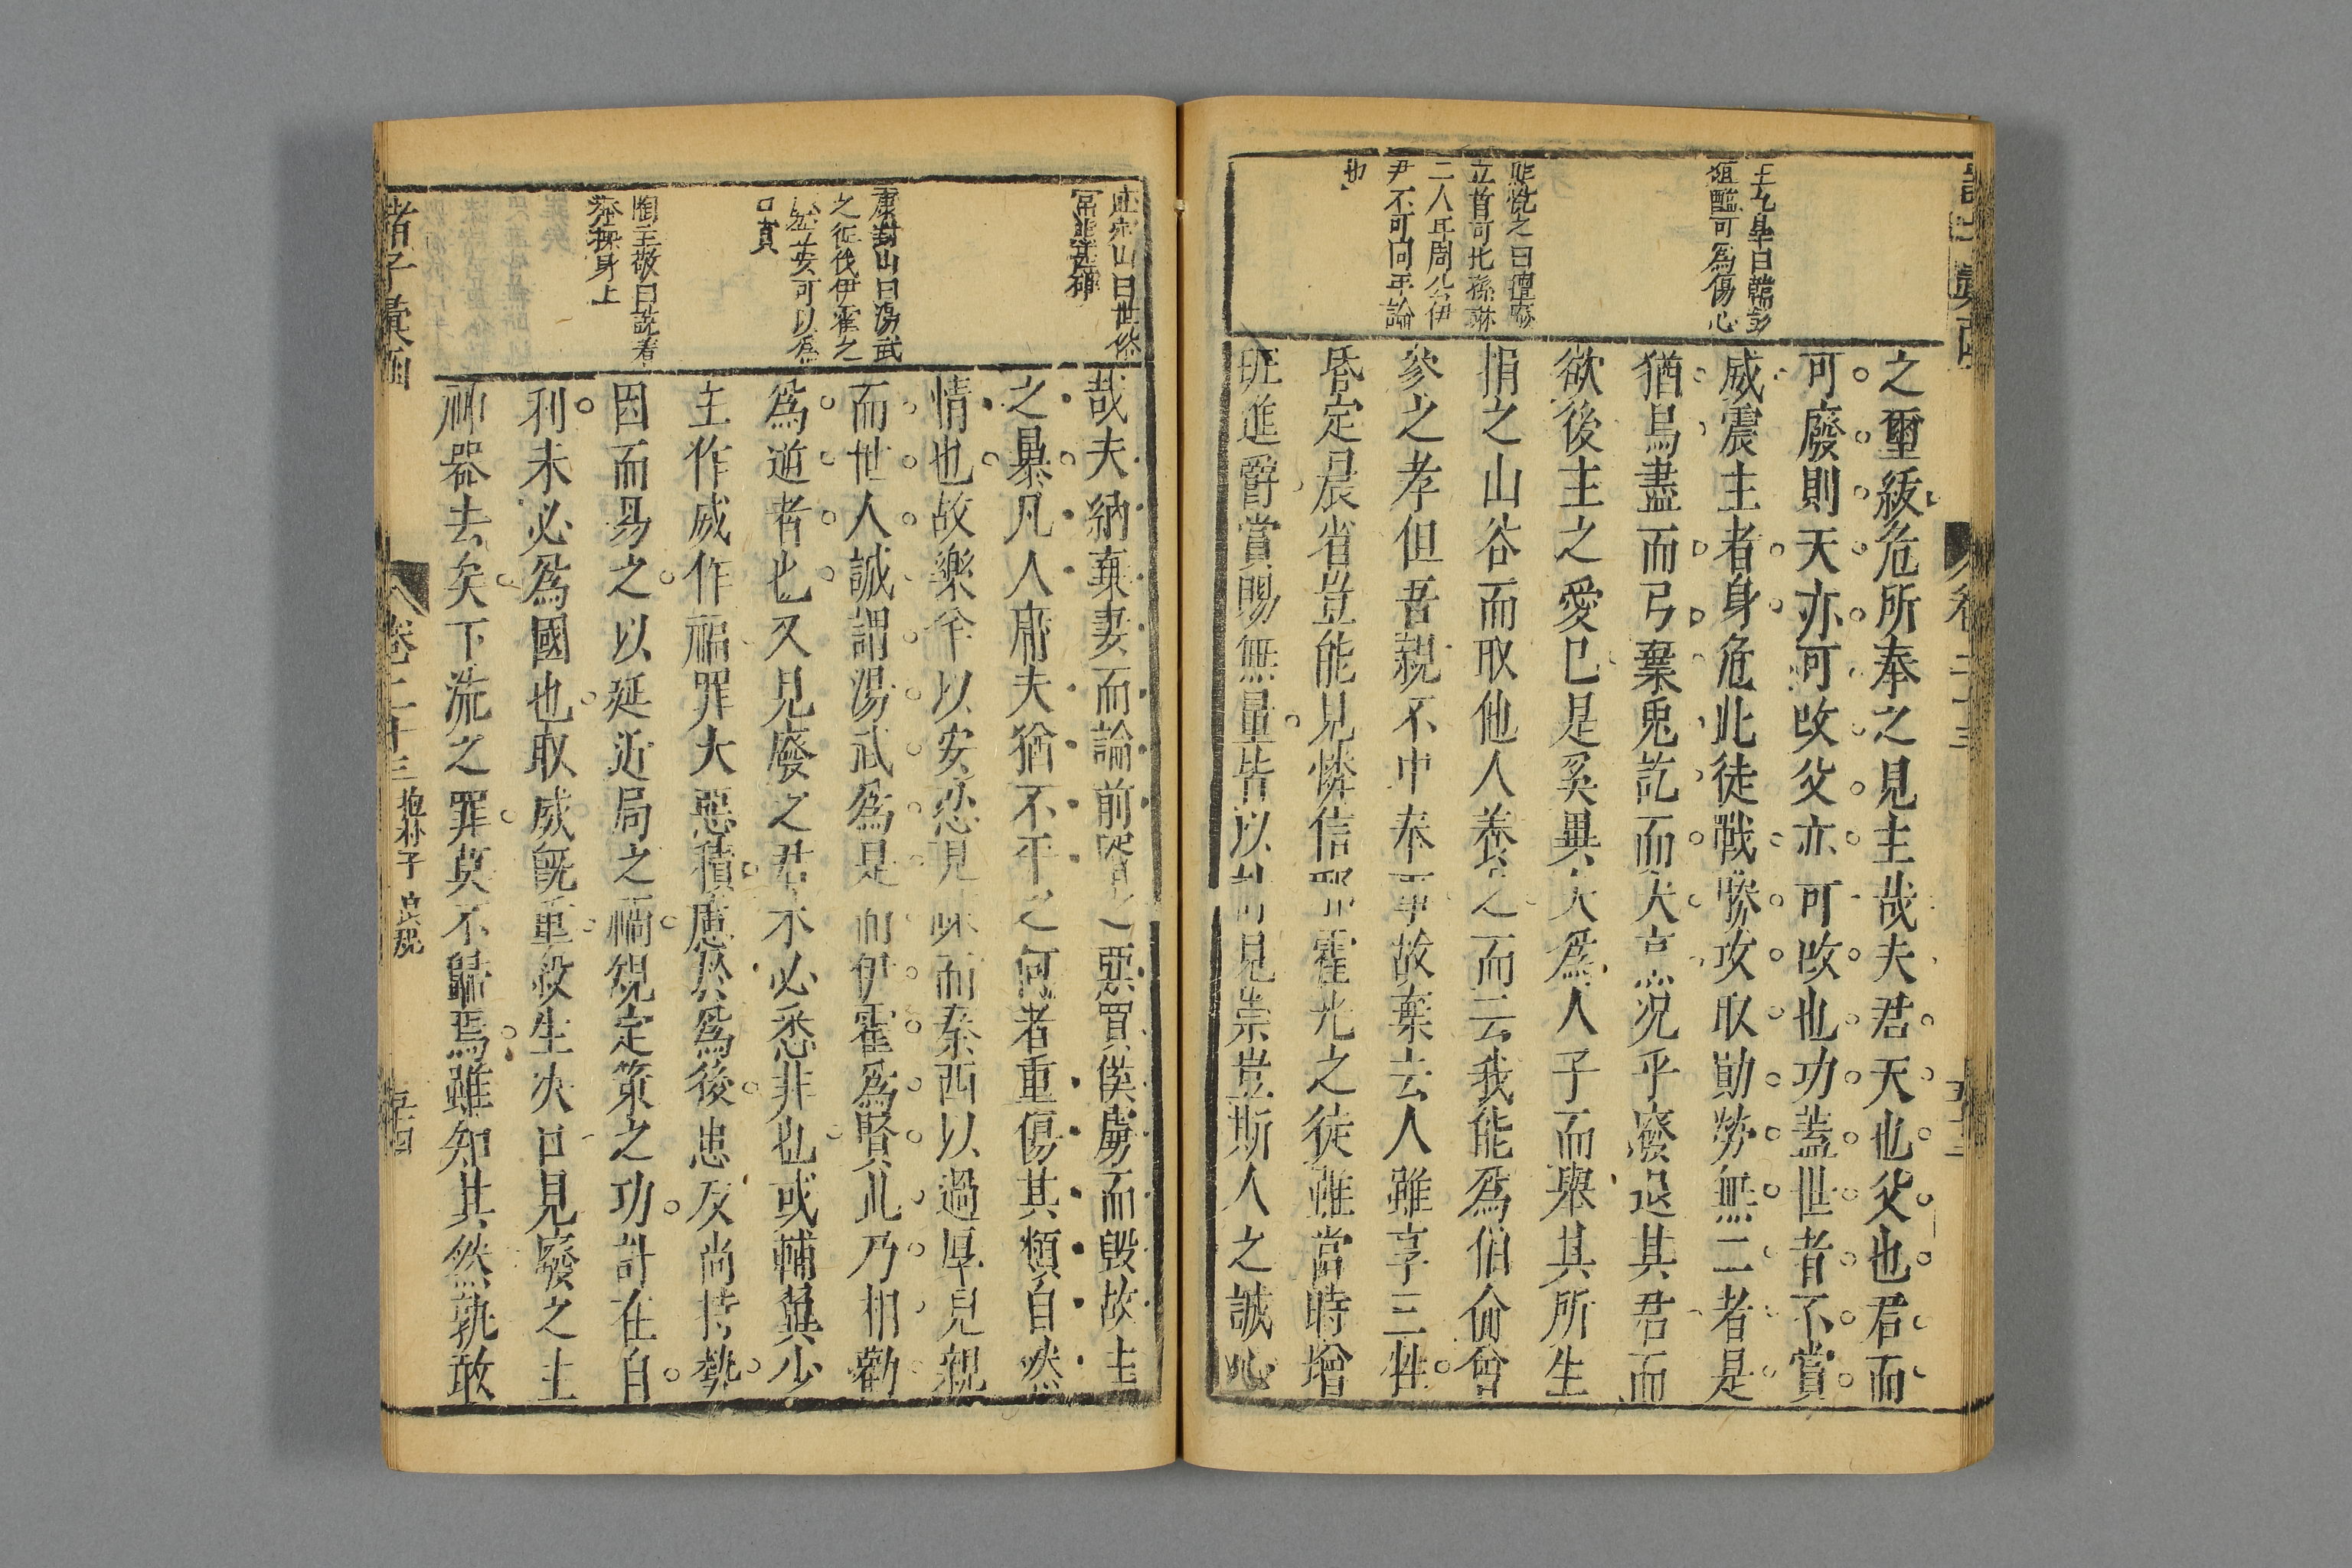 王九皐曰韓彭
菹醢可為傷心
之曰
立者可比孫綝
二人耳周公伊
尹不可同乎論
也
之璽紱危所奉之見主哉夫君天也父也君而
可廢則天亦可改父亦可改也功蓋世者不賞
威震主者身危此徒戰勝攻取勛勞無二者是
猶鳥盡而弓棄兎訖而犬烹況乎廢退其君而
欲後主之愛已是奚異夫為人子而舉其所生
捐之山谷而取他人養之而云我能為伯俞曾
參之孝但吾親不中奉事故棄去人雖享三牲
昏定晨省豈能見憐信邪霍光之徒雖當時增
班進爵賞賜無量皆以計見崇豈斯人之誠心
山曰世俗
康封山曰湯武
之征伐伊霍之
安可以為
口實
陶主敬曰說者
身上
哉夫納棄妻而論前壻之惡買僕虜而毀故主
之暴凡人庸夫猶不平之何者重傷其類自然
情也故樂羊以安忍見疎而秦西以過厚見親
而世人誠謂湯武為是而伊霍為賢此乃相勸
為逆者也又見廢之君未必悉非也或輔翼少
主作威作福罪大惡積慮於為後患及尚持勢
因而易之以延近局之禍規定策之功計在自
利未必為國也取威既重殺生決口見廢之主
神器去矣下流之罪莫不歸焉雖知其然孰敢
諸子彙函
卷二十三 抱朴子 良規
五十四